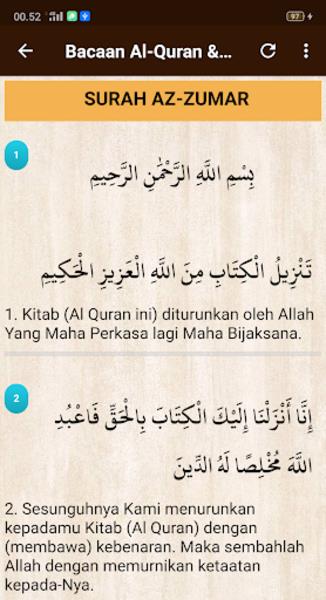 00.52
97
Bacaan Al-Quran &...
SURAH AZ-ZUMAR
1
بِسْمِ اللَّهِ الرَّحْمَٰنِ الرَّحِيمِ
تَنْزِيلُ الْكِتَابِ مِنَ اللَّهِ الْعَزِيزِ الْحَكِيمِ
1. Kitab (Al Quran ini) diturunkan oleh Allah
Yang Maha Perkasa lagi Maha Bijaksana.
2
إِنَّا أَنْزَلْنَا إِلَيْكَ الْكِتَابَ بِالْحَقِّ فَاعْبُدِ
اللَّهَ مُخْلِصًا لَهُ الدِّينَ
2. Sesungguhnya Kami menurunkan
kepadamu Kitab (Al Quran) dengan
(membawa) kebenaran. Maka sembahlah
Allah dengan memurnikan ketaatan
kepada-Nya.